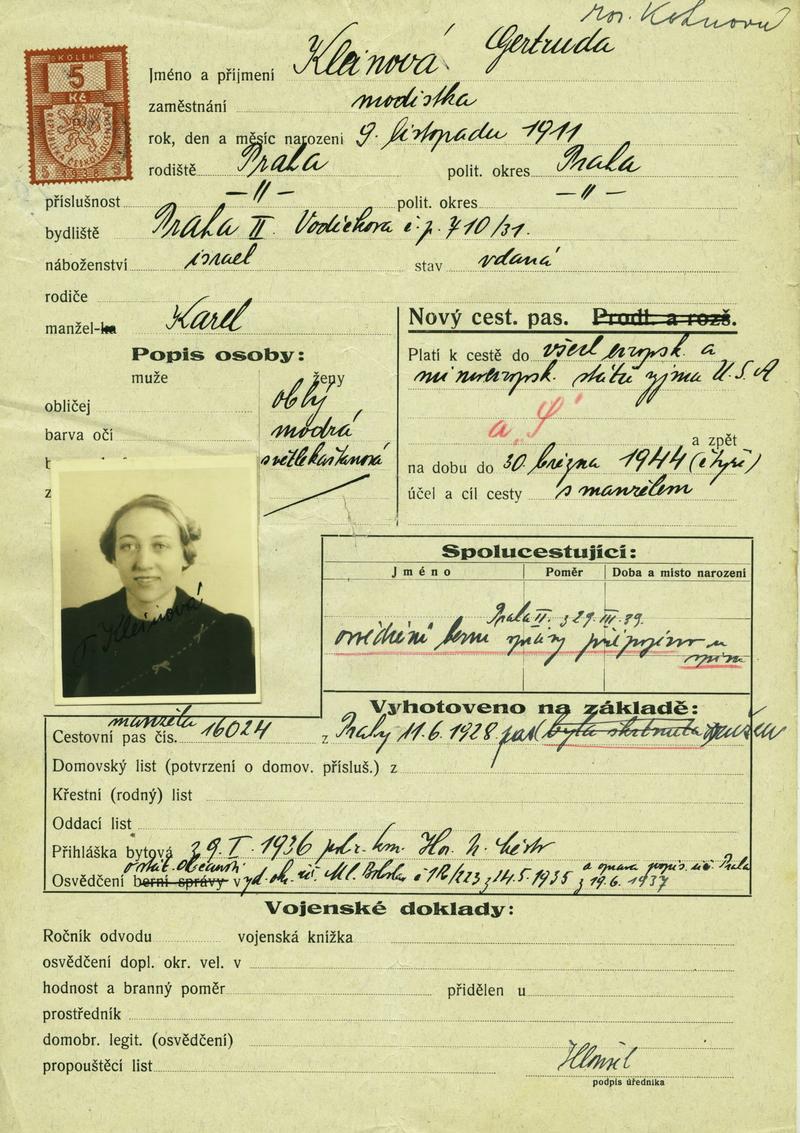 roz. Kohnová
KOLEK
5
Kč
REPUBLIKA ČESKOSLOVENSKÁ
5 1938 5
Jméno a příjmení Kleinová Gertruda
zaměstnání modistka
rok, den a měsíc narození 9. listopadu 1911
rodiště Praha polit. okres Praha
příslušnost —〃— polit. okres —〃—
bydliště Praha II Vodičkova č. p. 710/31.
náboženství israel stav vdaná
rodiče
manžel-ka Karel
Nový cest. pas. Prodl. a rozš.
Popis osoby:
muže ženy
obličej oblý
barva očí modrá
světlekaštanová
Platí k cestě do všech evropsk. a
mimoevropsk. států vyjma U.S.A
a „S“
a zpět
na dobu do 30 března 1944 (čtyři)
účel a cíl cesty s manželem
T. Kleinová
Spolucestující:
Jméno Poměr Doba a místo narození
Praha II. z 29. III. 39.
osvědčení berní správy
Vyhotoveno na základě:
manžela
Cestovní pas čís. 16024 z Prahy 11.6.1928 pas
Domovský list (potvrzení o domov. přísluš.) z
Křestní (rodný) list
Oddací list
Přihláška bytová z 9. I. 1936 pol. kom.
o stát. občanství
Osvědčení berní správy vyd. ok. úř. Ml. Boleslav č 12/223 z 14.5.1935 z 19.6.1937
a oprava popis. úř. Praha
Vojenské doklady:
Ročník odvodu vojenská knížka
osvědčení dopl. okr. vel. v
hodnost a branný poměr přidělen u
prostředník
domobr. legit. (osvědčení)
propouštěcí list
podpis úředníka